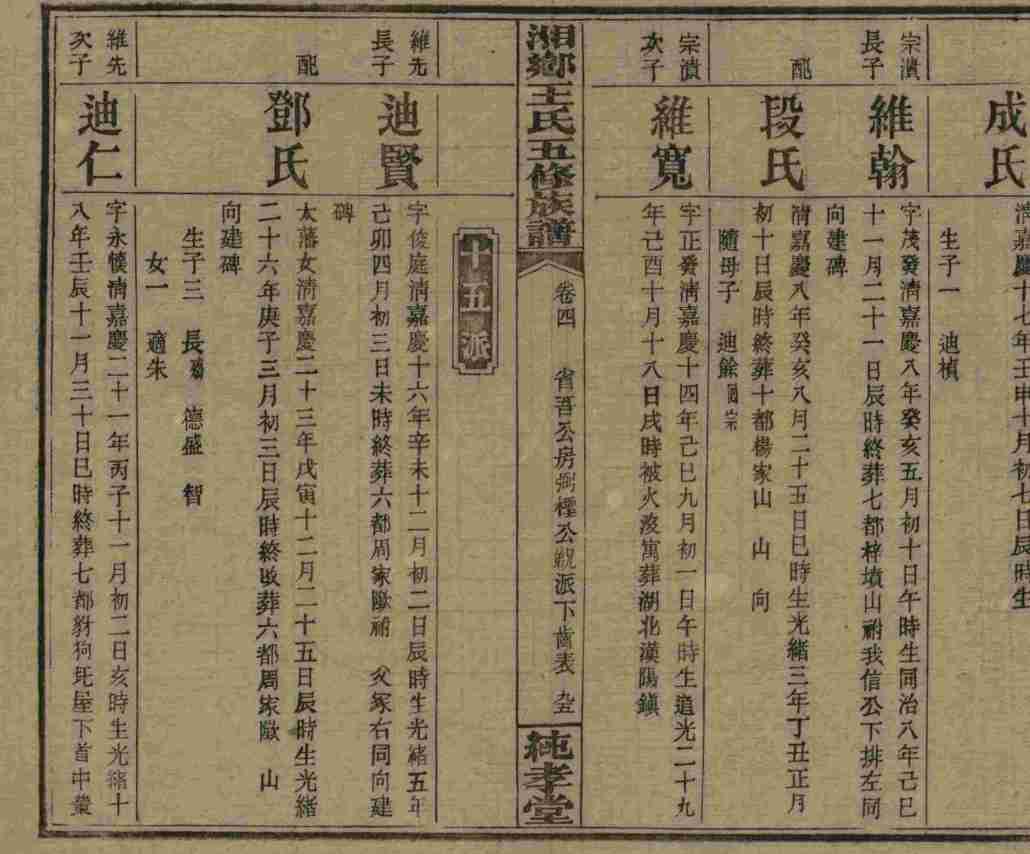 成氏
清嘉慶十七年壬申十月初七日辰時生
生子一 迪楨
宗濆
長子
維翰
字茂發清嘉慶八年癸亥五月初十日午時生同治八年己巳
十一月二十一日辰時終葬七都梓墳山祔我信公下排左同
向建碑
配
段氏
清嘉慶八年癸亥八月二十五日巳時生光緒三年丁丑正月
初十日辰時終葬十都楊家山 山 向
隨母子 迪餘
宗濆
次子
維寬
字正發清嘉慶十四年己巳九月初一日午時生道光二十九
年己酉十月十八日戌時被火沒寓葬湖北漢陽鎮
湘鄉王氏五修族譜
卷四 省吾公房 派下齒表 九五
純孝堂
十五派
維先
長子
迪賢
字俊庭清嘉慶十六年辛未十二月初二日辰時生光緒五年
己卯四月初三日未時終葬六都周家 祔 父冢右同向建
碑
配
鄧氏
太藩女清嘉慶二十三年戊寅十二月二十五日辰時生光緒
二十六年庚子三月初三日辰時終 葬六都周家 山
向建碑
生子三 長 德盛 智
女一 適朱
維先
次子
迪仁
字永懷清嘉慶二十一年丙子十一月初二日亥時生光緒十
八年壬辰十一月三十日巳時終葬七都豺狗 屋下首中